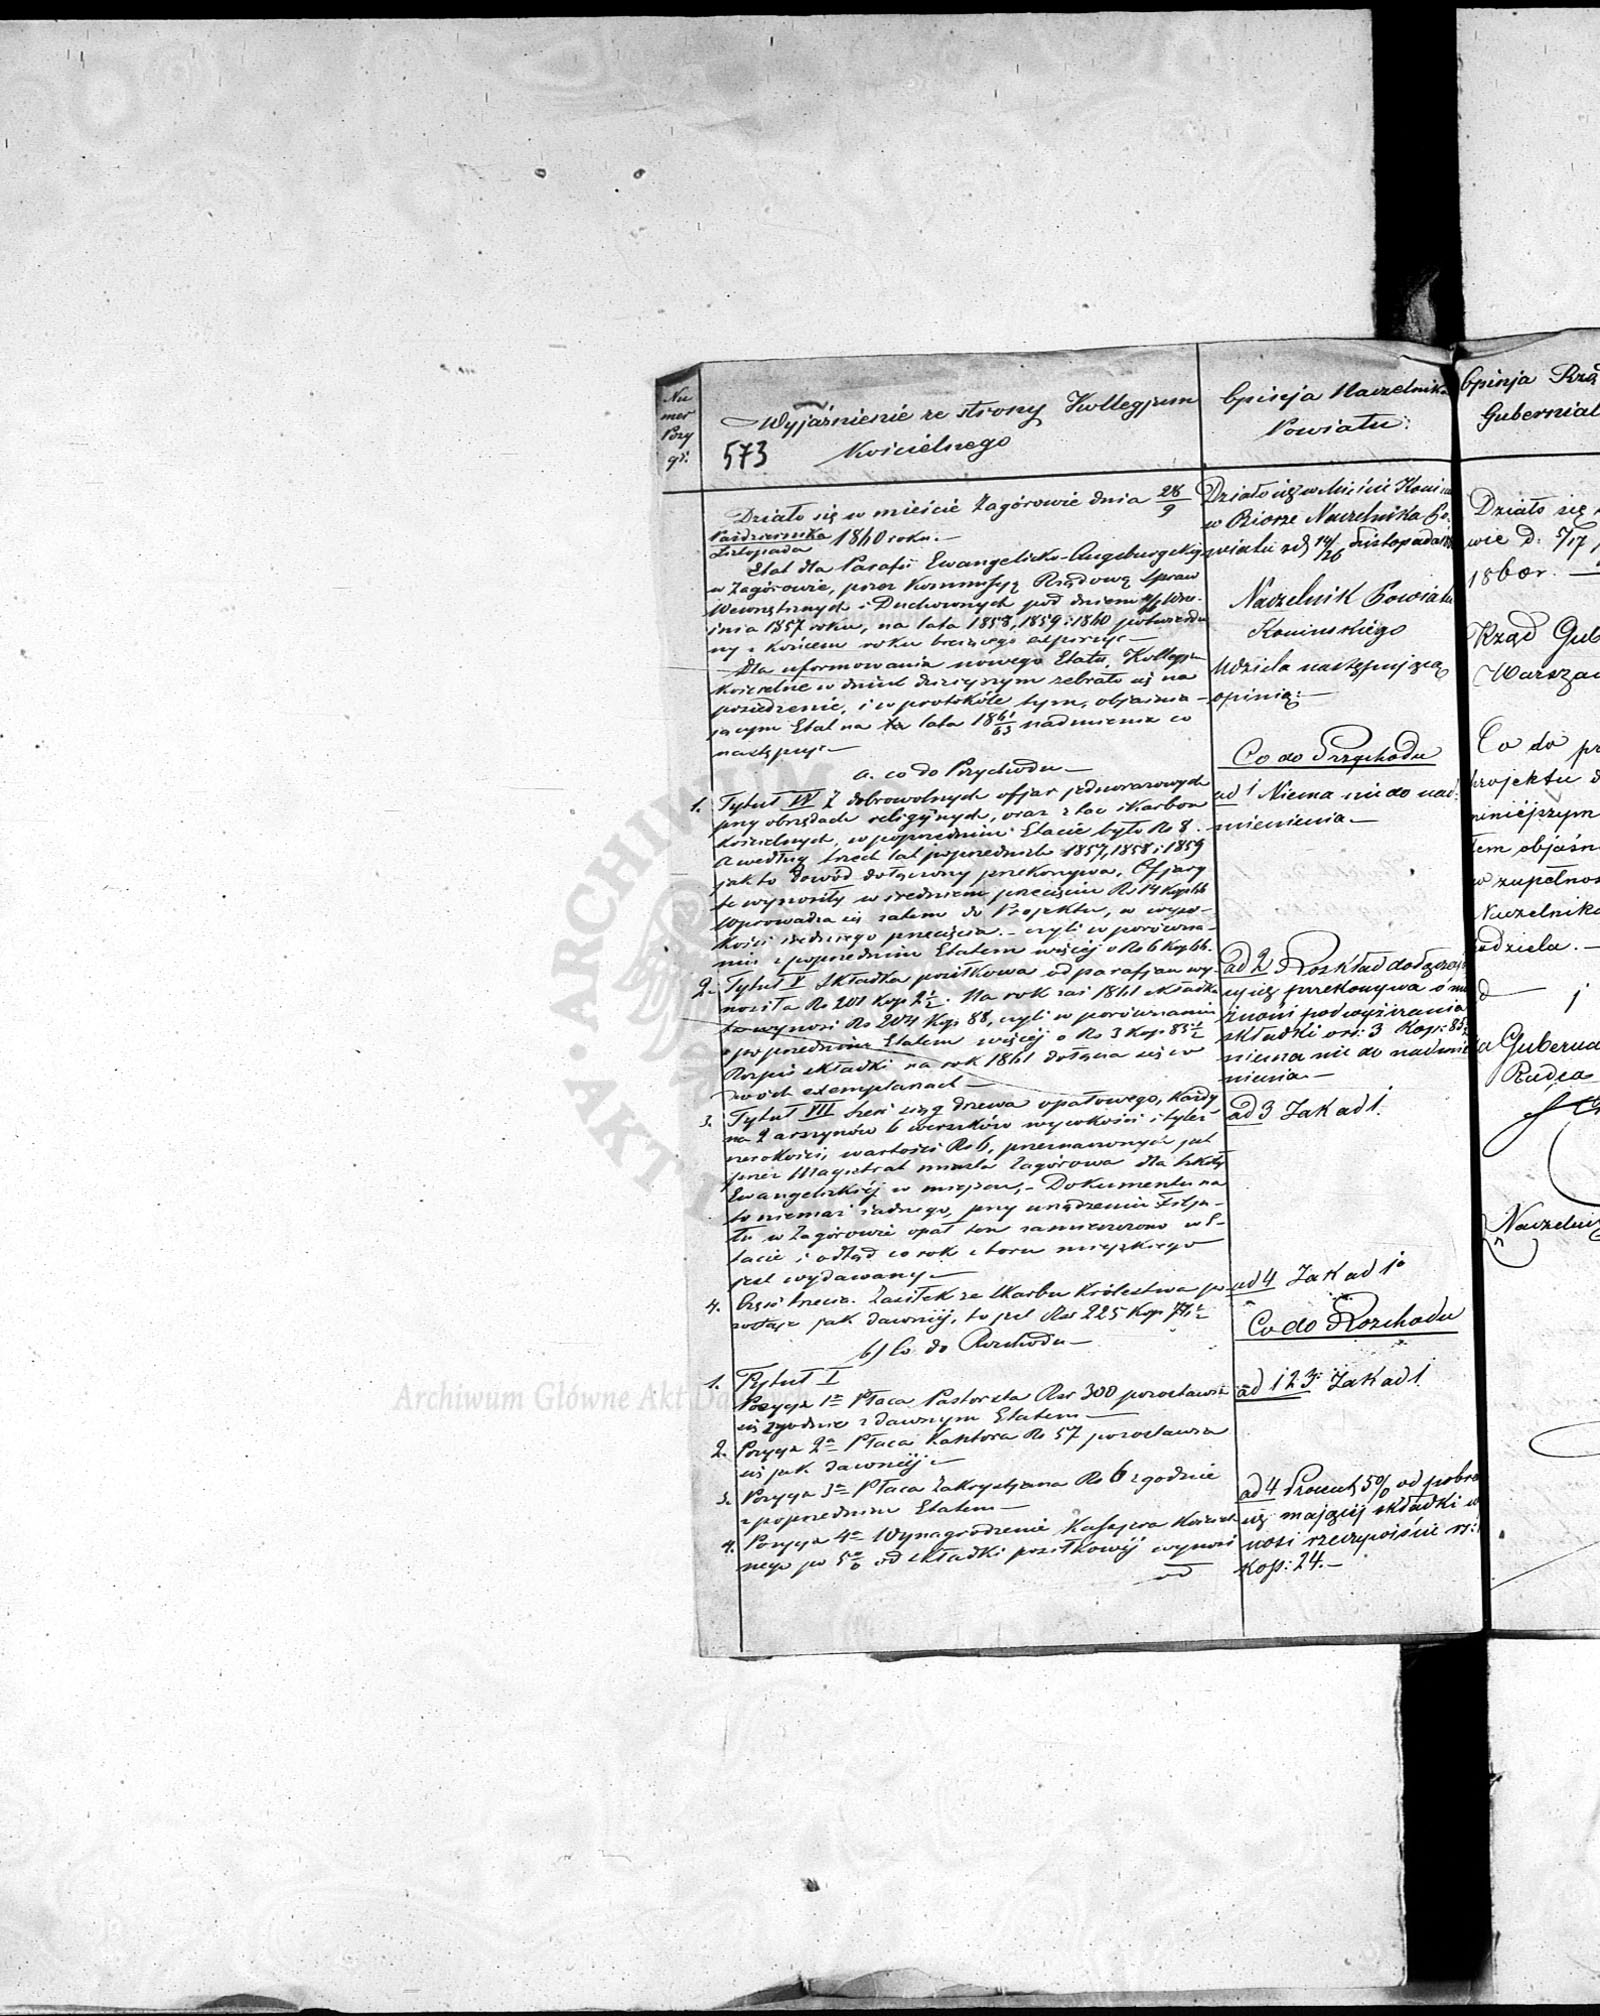 Nu
mer
Pozy
cji
Wyjaśnienie ze strony Kollegjum
Kościelnego
573
Działo się w mieście Zagórowie dnia 28/9
Października
Listopada 1860 roku.—
Etat dla Parafii Ewangelicko-Augsburgskiej
w Zagórowie, przez Kommissyą Rządową Spraw
Wewnętrznych i Duchownych pod dniem Wrze-
śnia 1857 roku, na lata 1858, 1859 i 1860 potwierdzo
ny z końcem roku bieżącego exspiruje—
Dla uformowania nowego Etatu, Kollegjum
Kościelne w dniu dzisiejszym zebrało się na
posiedzenie, i w protokóle tym, objaśnia-
jącym Etat na lata 1861/63 nadmienia co
następuje—
a. co do Przychodu—
1. Tytuł IV Z dobrowolnych ofjar jednorazowych
przy obrzędach religijnych, oraz z tac i Karbon
kościelnych, w poprzednim Etacie było Rs 8.
a według trzech lat poprzednich 1857, 1858 i 1859
jak to dowód dołączony przekonywa, Ofjary
te wynosiły w średnim przecięciu Rs 14 Kop 66
Wprowadza się zatem do Projektu, w wyso-
kości średniego przecięcia.— czyli w porówna-
niu z poprzednim Etatem więcej o Rs 6 Kop 66.
2. Tytuł V Składka posiłkowa od parafjan wy-
nosiła Rs 201 Kop 2½. Na rok zaś 1861 składka
ta wynosi Rs 204 Kop 88, czyli w porównaniu
z poprzednim Etatem więcej o Rs 3 Kop 85½
Rozpis składki na rok 1861 dołącza się w
dwóch exemplarzach—
3. Tytuł VII Sześć sążą drzewa opałowego, każdy
na 2 arszynów 6 werszków wysokości i tyleż
szerokości, wartości Rs 6, przeznaczonych jest
przez Magistrat miasta Zagórowa dla Szkoły
Ewangelickiéj w miejscu,— Dokumentu na
to niemasz żadnego, przy urządzeniu Filja-
łu w Zagórowie opał ten zamieszczono w E-
tacie i odtąd co rok z boru miejskiego
jest wydawany—
4. Część trzecia. Zasiłek ze Skarbu Królestwa po
zostaje jak dawniéj, to jest Rsr 225 Kop
b/ Co do Rozchodu—
1. Tytuł I
Pozycja 1a Płaca Pastorska Rsr 300 pozostawia
się zgodnie z dawnym Etatem—
2. Pozycja 2a Płaca Kantora Rs 57 pozostawia
się jak dawniéj—
3. Pozycja 3a Płaca Zakrystyana Rs 6 zgodnie
z poprzednim Etatem—
4. Pozycja 4a Wynagrodzenie Kassjera Kościel
nego po 5% od składki posiłkowéj wynosi
od
Opinja Naczelnika
Powiatu:
Działo się w Mieście Koninie
w Biorze Naczelnika Po-
wiatu 14/26 Listopada
Naczelnik Powiatu
Konińskiego
udziela następującą
opinią:—
Co do Przychodu
ad 1 Niema nic do nad-
mienienia—
ad 2 Rozkład dołączają
cy się przekonywa o mo
żności podwyższenia
składki o rs: 3 Kop: 85½
niema nic do nadmie
nienia—
ad 3 Jak ad 1.
ad 4 Jak ad 1o
Co do Rozchodu
ad 1 2 3: Jak ad 1.
ad 4 Procent 5% od pobra
się mającej składki wy
nosi rzeczywiście rs:
kop: 24.—
Opinja Rzą
Gubernial
Działo się
wie d. 5/17
1860 r.
Rząd Gub
Warszaw
Co do pr
projektu
niniejszym
tem objaśn
w zupełnoś
Naczelnika
udziela.—
Guberna
Radca
Naczelnik
Archiwum Główne Akt Dawnych
ARCHIWUM
AKT